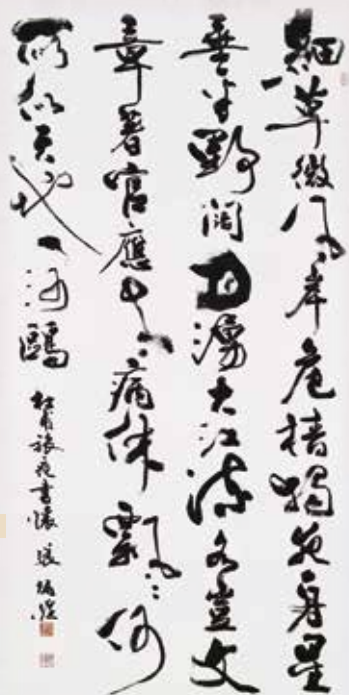 細草微風岸危檣獨夜舟星
垂平野闊月湧大江流名豈文
章著官應老病休飄〻何
所似天地一沙鷗
杜甫旅夜書懷 張